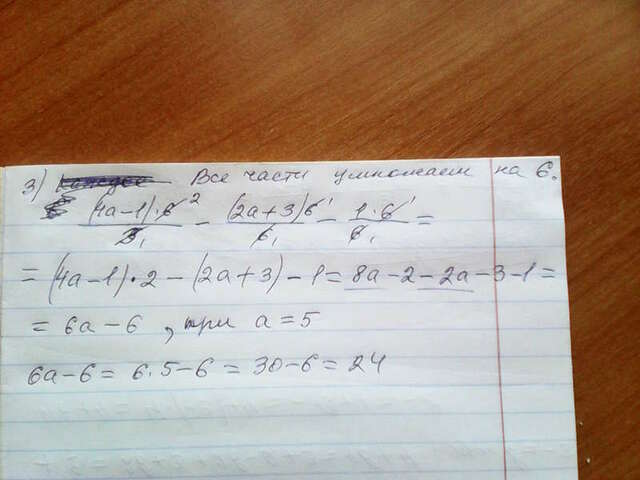 3) Все части умножаем на 6.
(4a-1)·6² / 3₁ - (2a+3)6¹ / 6₁ - 1·6¹ / 6₁ =
= (4a-1)·2 - (2a+3) - 1 = 8a-2-2a-3-1=
= 6a-6, при a=5
6a-6= 6·5-6 = 30-6=24